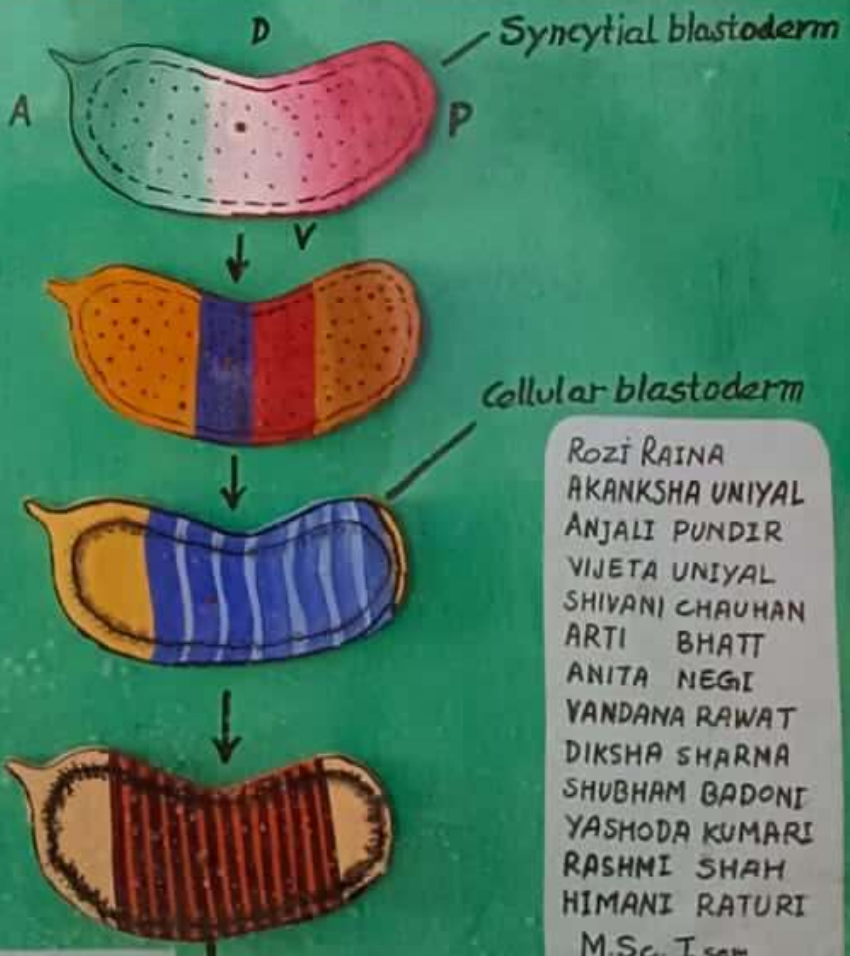 D
Syncytial blastoderm
A
P
V
Cellular blastoderm
ROZI RAINA
AKANKSHA UNIYAL
ANJALI PUNDIR
VIJETA UNIYAL
SHIVANI CHAUHAN
ARTI BHATT
ANITA NEGI
VANDANA RAWAT
DIKSHA SHARMA
SHUBHAM BADONI
YASHODA KUMARI
RASHMI SHAH
HIMANI RATURI
M.Sc. I sem